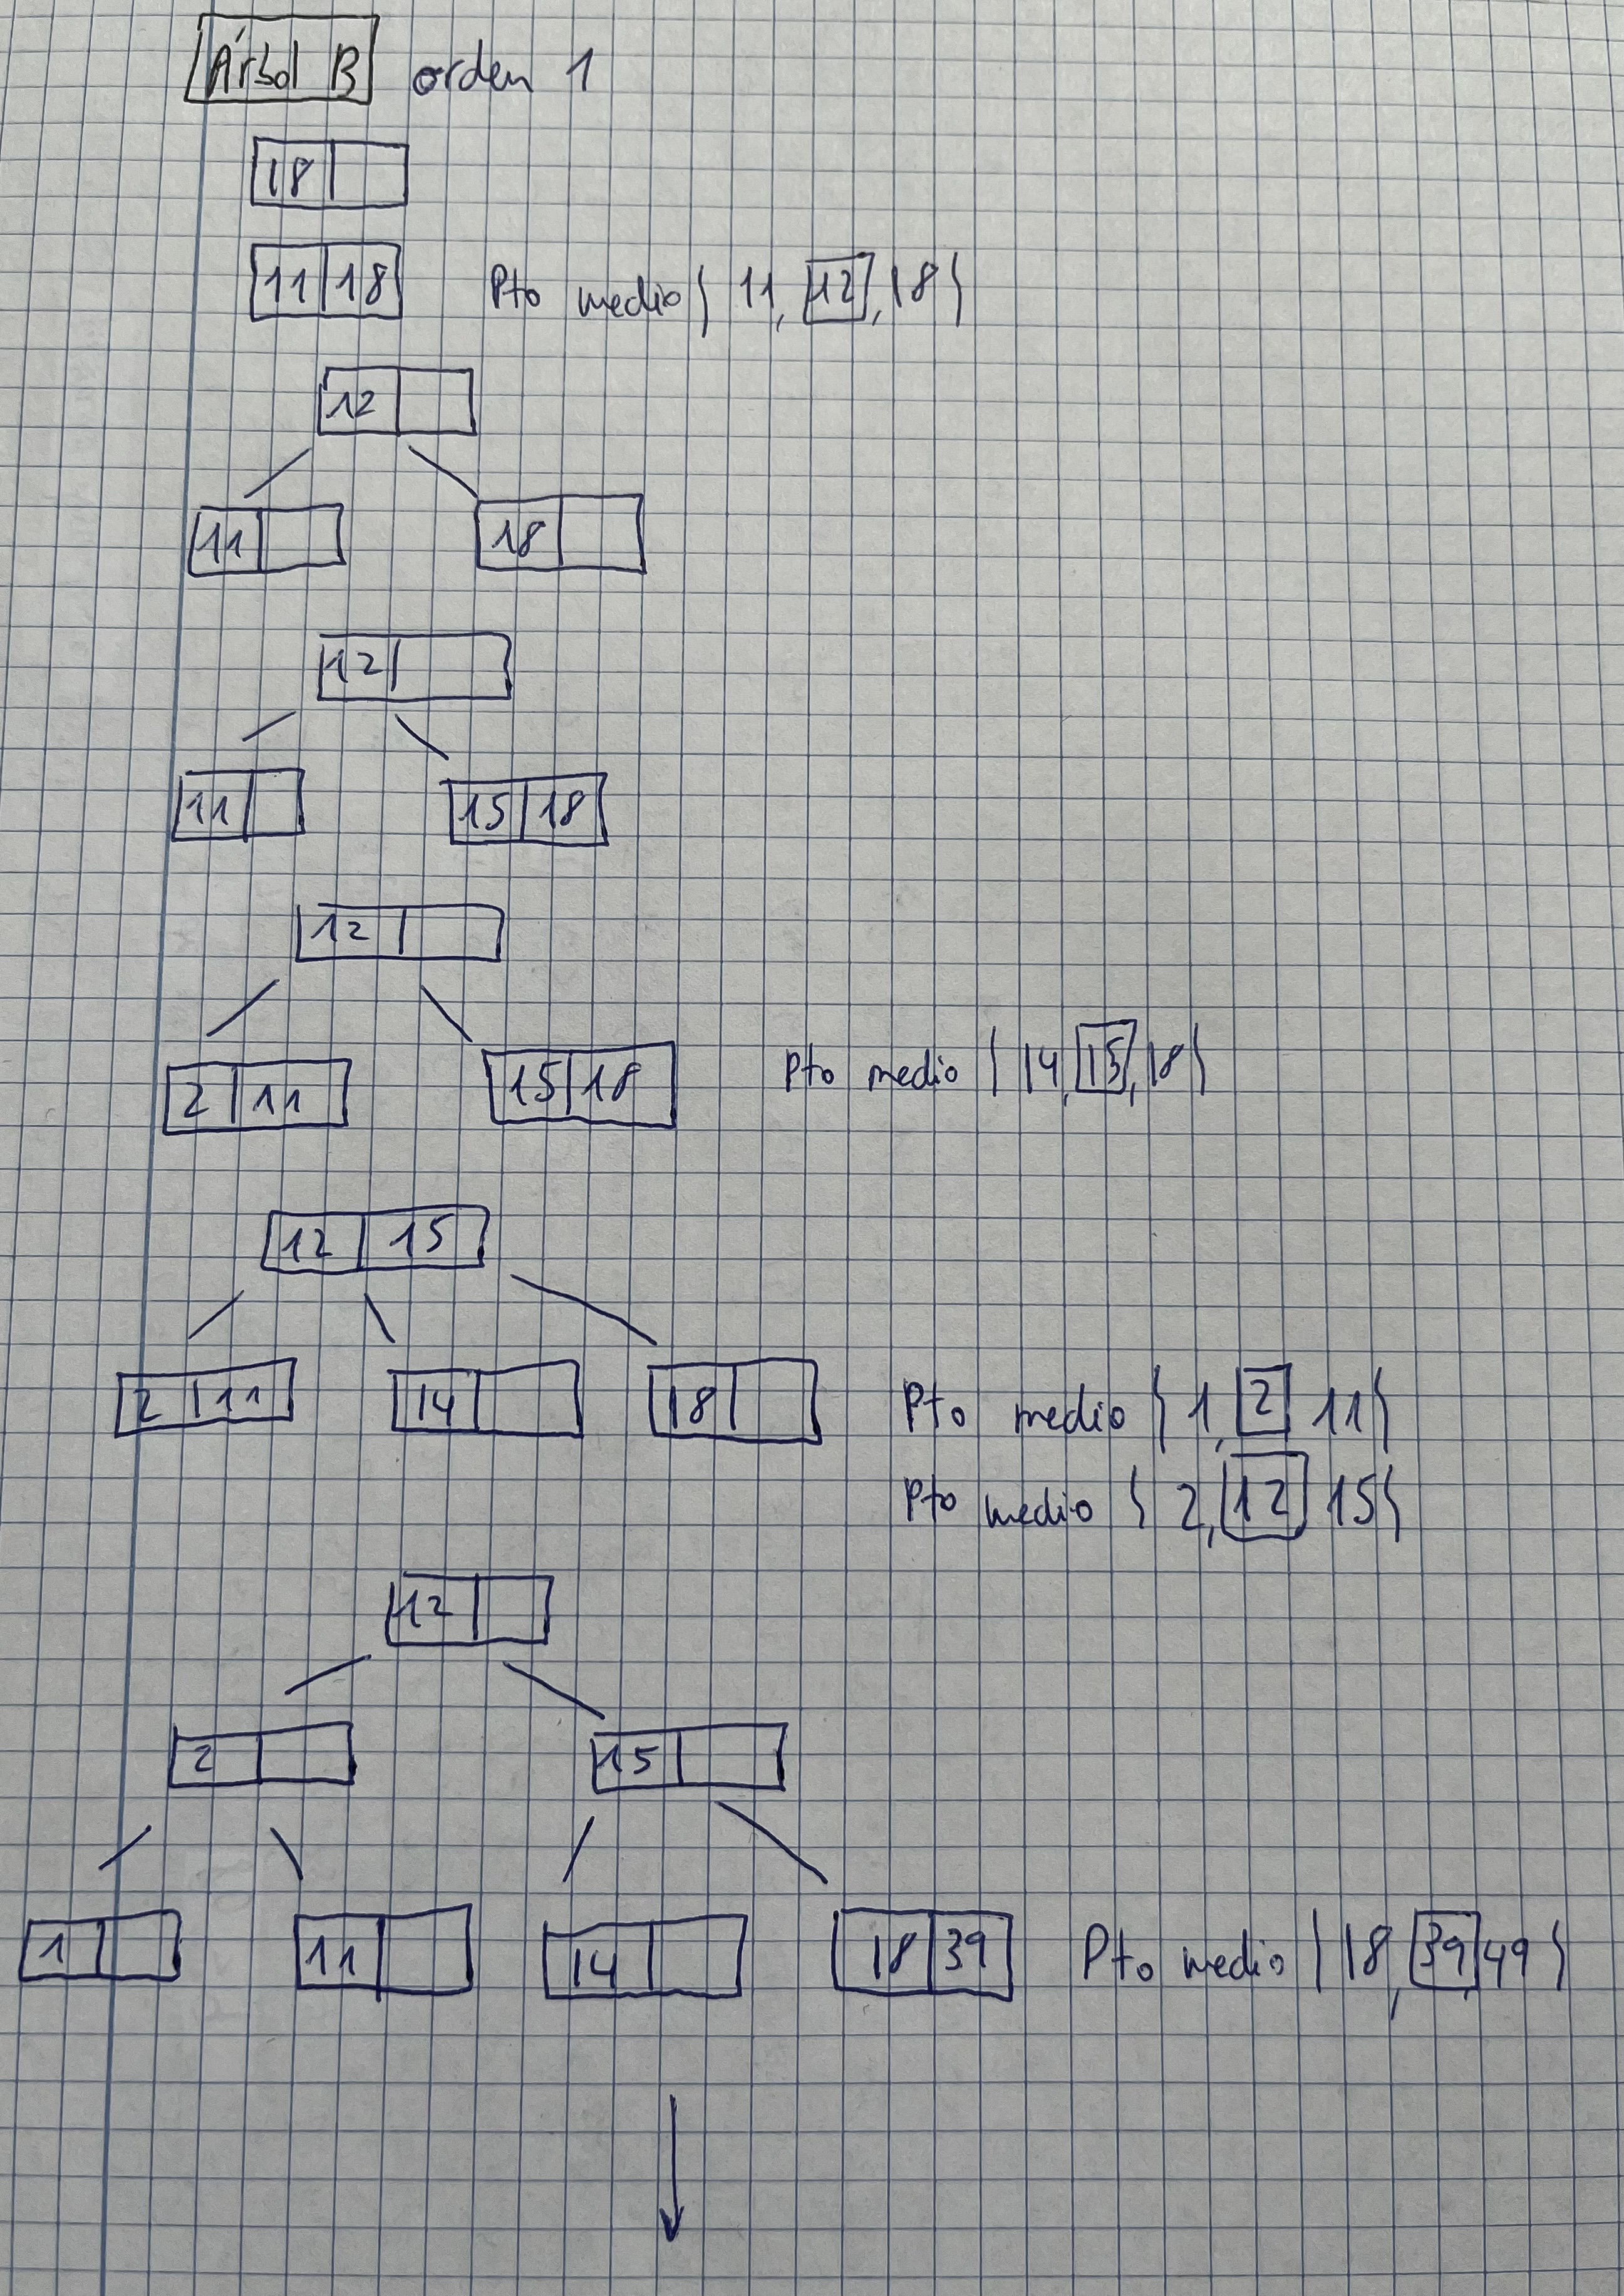 Árbol B orden 1
18
11 18 Pto medio { 11, 12, 18 }
12
11 18
12
11 15 18
12
2 11 15 18 Pto medio { 14, 15, 18 }
12 15
2 11 14 18 Pto medio { 1, 2 11 }
Pto medio { 2, 12 15 }
12
2 15
1 11 14 18 39 Pto medio { 18, 39, 49 }